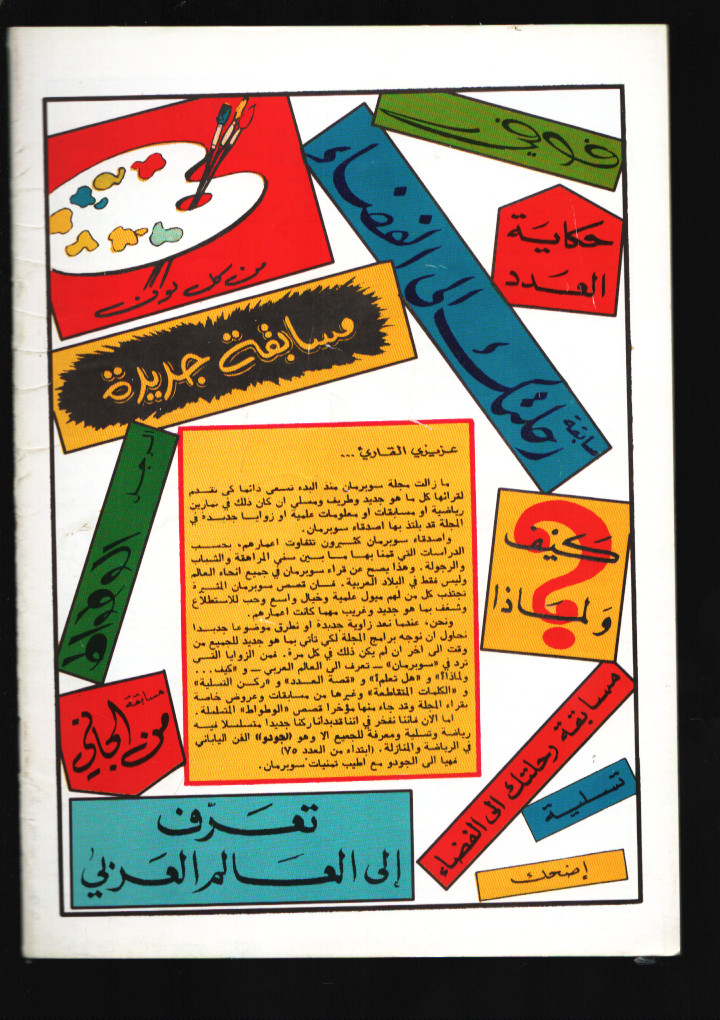 فوفي
رحلتك الى الفضاء
مسابقة
حكاية
العدد
من كل لون
مسابقة جديدة
عزيزي القارئ ...
ما زالت مجلة سوبرمان منذ البدء تسعى دائما كي تقدم
لقرائها كل ما هو جديد وطريف ومسلي ان كان ذلك في تمارين
رياضية أو مسابقات أو معلومات علمية أو زوايا جديدة في
المجلة قد يلتذ بها اصدقاء سوبرمان.
واصدقاء سوبرمان كثيرون تتفاوت اعمارهم، بحسب
الدراسات التي قمنا بها ما بين سني المراهقة والشباب
والرجولة. وهذا يصح عن قراء سوبرمان في جميع انحاء العالم
وليس فقط في البلاد العربية. فان قصص سوبرمان المثيرة
تجتذب كل من لهم ميول علمية وخيال واسع وحب للاستطلاع
وشغف بما هو جديد وغريب مهما كانت اعمارهم.
ونحن، عندما نعد زاوية جديدة او نطرق موضوعا جديدا
نحاول ان نوجه برامج المجلة لكي تأتي بما هو جديد للجميع من
وقت الى آخر ان لم يكن ذلك في كل مرة. فمن الزوايا التي
ترد في «سوبرمان» ــ تعرف الى العالم العربي ــ و «كيف...
ولماذا؟» و «هل تعلم؟» و «قصة العدد» و «ركن التسلية»
و «الكلمات المتقاطعة» وغيرها من مسابقات وعروض خاصة
بقراء المجلة وقد جاء منها مؤخرا قصص «الوطواط» المتسلسلة.
اما الان فاننا نفخر في اننا قد بدأنا ركنا جديدا متسلسلا فيه
رياضة وتسلية ومعرفة للجميع الا وهو «الجودو» الفن الياباني
في الرياضة والمنازلة. (ابتداء من العدد ٧٥)
فهيا الى الجودو مع اطيب تمنيات سوبرمان.
كيف
ولماذا
؟
الرجل الوطواط
مسابقة
من الجاني
مسابقة رحلتك الى الفضاء
تسلية
إضحك
تعرّف
إلى العالم العربي